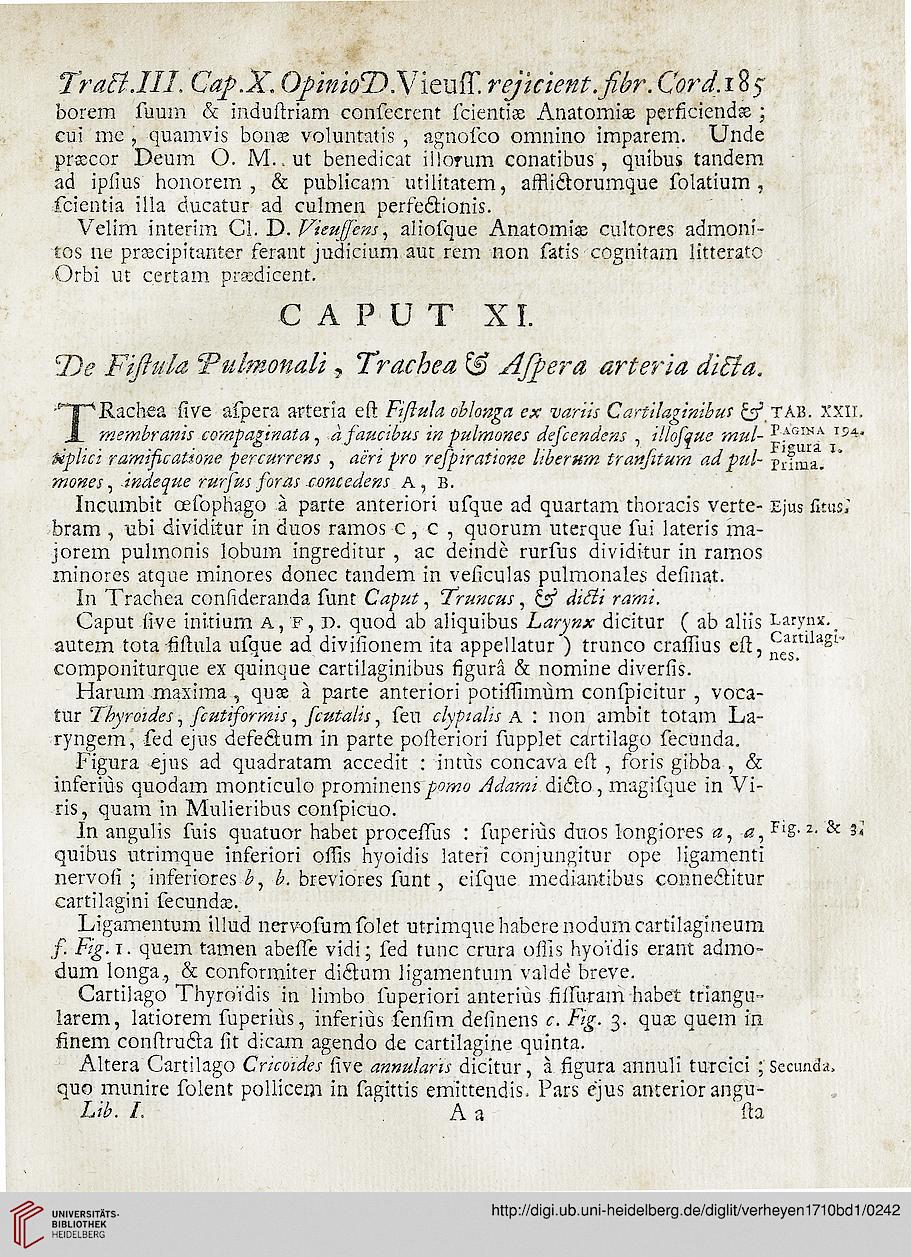 Tract.III. Cap.X. Opinio D.Vieuſſ. rejicient. fibr. Cord. 185
borem ſuum & induſtriam conſecrent ſcientiæ Anatomiæ perficiendæ ;
cui me , quamvis bonæ voluntatis , agnoſco omnino imparem. Unde
præcor Deum O. M. ut benedicat illorum conatibus , quibus tandem
ad ipſius honorem , & publicam utilitatem, afflictorumque ſolatium ,
ſcientia illa ducatur ad culmen perfectionis.
Velim interim Cl. D. Vieuſſens, alioſque Anatomiæ cultores admoni-
tos ne præcipitanter ferant judicium aut rem non ſatis cognitam litterato
Orbi ut certam prædicent.
CAPUT XI.
De Fiſtula Pulmonali , Trachea & Aſpera arteria dicta.
TRachea ſive aſpera arteria eſt Fiſtula oblonga ex variis Cartilaginibus & TAB. XXII.
membranis compaginata , à faucibus in pulmones deſcendens , illoſque mul- PAGINA 194.
tiplici ramificatione percurrens , aëri pro reſpiratione liberum tranſitum ad pul- Figura 1.
mones , indeque rurſus foras concedens A , B. Prima.
Incumbit œſophago à parte anteriori uſque ad quartam thoracis verte- Ejus ſitus.
bram , ubi dividitur in duos ramos C , C , quorum uterque ſui lateris ma-
jorem pulmonis lobum ingreditur , ac deindè rurſus dividitur in ramos
minores atque minores donec tandem in veſiculas pulmonales deſinat.
In Trachea conſideranda ſunt Caput, Truncus, & dicti rami.
Caput ſive initium A, F, D. quod ab aliquibus Larynx dicitur ( ab aliis Larynx.
autem tota fiſtula uſque ad diviſionem ita appellatur ) trunco craſſius eſt, Cartilagi-
componiturque ex quinque cartilaginibus figurâ & nomine diverſis. nes.
Harum maxima , quæ à parte anteriori potiſſimùm conſpicitur , voca-
tur Thyroides, ſcutiformis, ſcutalis, ſeu clypialis A : non ambit totam La-
ryngem, ſed ejus defectum in parte poſteriori ſupplet cartilago ſecunda.
Figura ejus ad quadratam accedit : intùs concava eſt , foris gibba , &
inferiùs quodam monticulo prominens pomo Adami dicto, magiſque in Vi-
ris, quam in Mulieribus conſpicuo.
In angulis ſuis quatuor habet proceſſus : ſuperiùs duos longiores a, a, Fig. 2. & 3.
quibus utrimque inferiori oſſis hyoidis lateri conjungitur ope ligamenti
nervoſi ; inferiores b, b. breviores ſunt , eiſque mediantibus connectitur
cartilagini ſecundæ.
Ligamentum illud nervoſum ſolet utrimque habere nodum cartilagineum
f. Fig. 1. quem tamen abeſſe vidi; ſed tunc crura oſſis hyoïdis erant admo-
dum longa, & conformiter dictum ligamentum valdè breve.
Cartilago Thyroïdis in limbo ſuperiori anteriùs fiſſuram habet triangu-
larem, latiorem ſuperiùs, inferiùs ſenſim deſinens c. Fig. 3. quæ quem in
finem conſtructa ſit dicam agendo de cartilagine quinta.
Altera Cartilago Cricoides ſive annularis dicitur, à figura annuli turcici ; Secunda.
quo munire ſolent pollicem in ſagittis emittendis. Pars ejus anterior angu-
Lib. I. A a ſta
UNIVERSITÄTS-
BIBLIOTHEK
HEIDELBERG
http://digi.ub.uni-heidelberg.de/diglit/verheyen1710bd1/0242